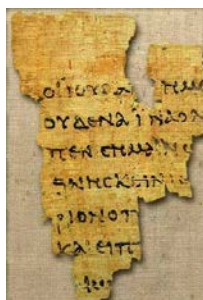 ΟΙΙΟΥΔΑ ΗΜ
ΟΥΔΕΝΑΪΝΑΟΛ
ΠΕΝCΗΜΑΙΝ
ΘΝΗCΚΕΙΝ
ΡΙΟΝΟΠ
ΚΑΙΕΙΠ